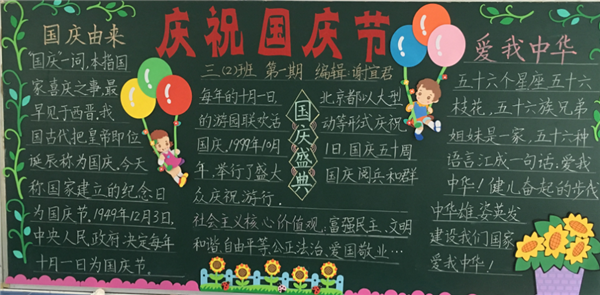 庆祝国庆节
三(2)班 第一期 编辑:谢宜君
国庆由来
"国庆"一词,本指国
家喜庆之事,最
早见于西晋,我
国古代把皇帝即位
诞辰称为国庆,今天
称国家建立的纪念日
为国庆节,1949年12月3日,
中央人民政府决定每年
十月一日为国庆节。
每年的十月一日,
的游园联欢活
国庆,1999年10月
年,举行了盛大
众庆祝游行.
国庆盛典
北京都以大型
动等形式庆祝
1日,国庆五十周
国庆阅兵和群
社会主义核心价值观:富强民主、文明
和谐,自由平等公正法治,爱国敬业…
爱我中华
五十六个星座五十六
枝花,五十六族兄弟
姐妹是一家,五十六种
语言汇成一句话,爱我
中华!健儿奋起的步伐
中华雄姿英发
建设我们国家
爱我中华!